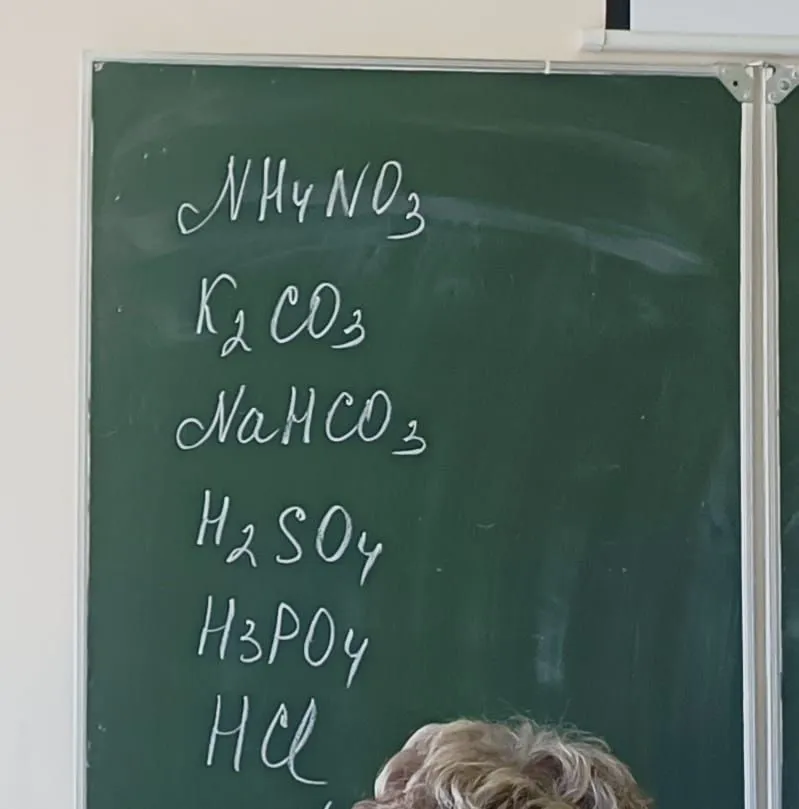 NH₄NO₃
K₂CO₃
NaHCO₃
H₂SO₄
H₃PO₄
HCl